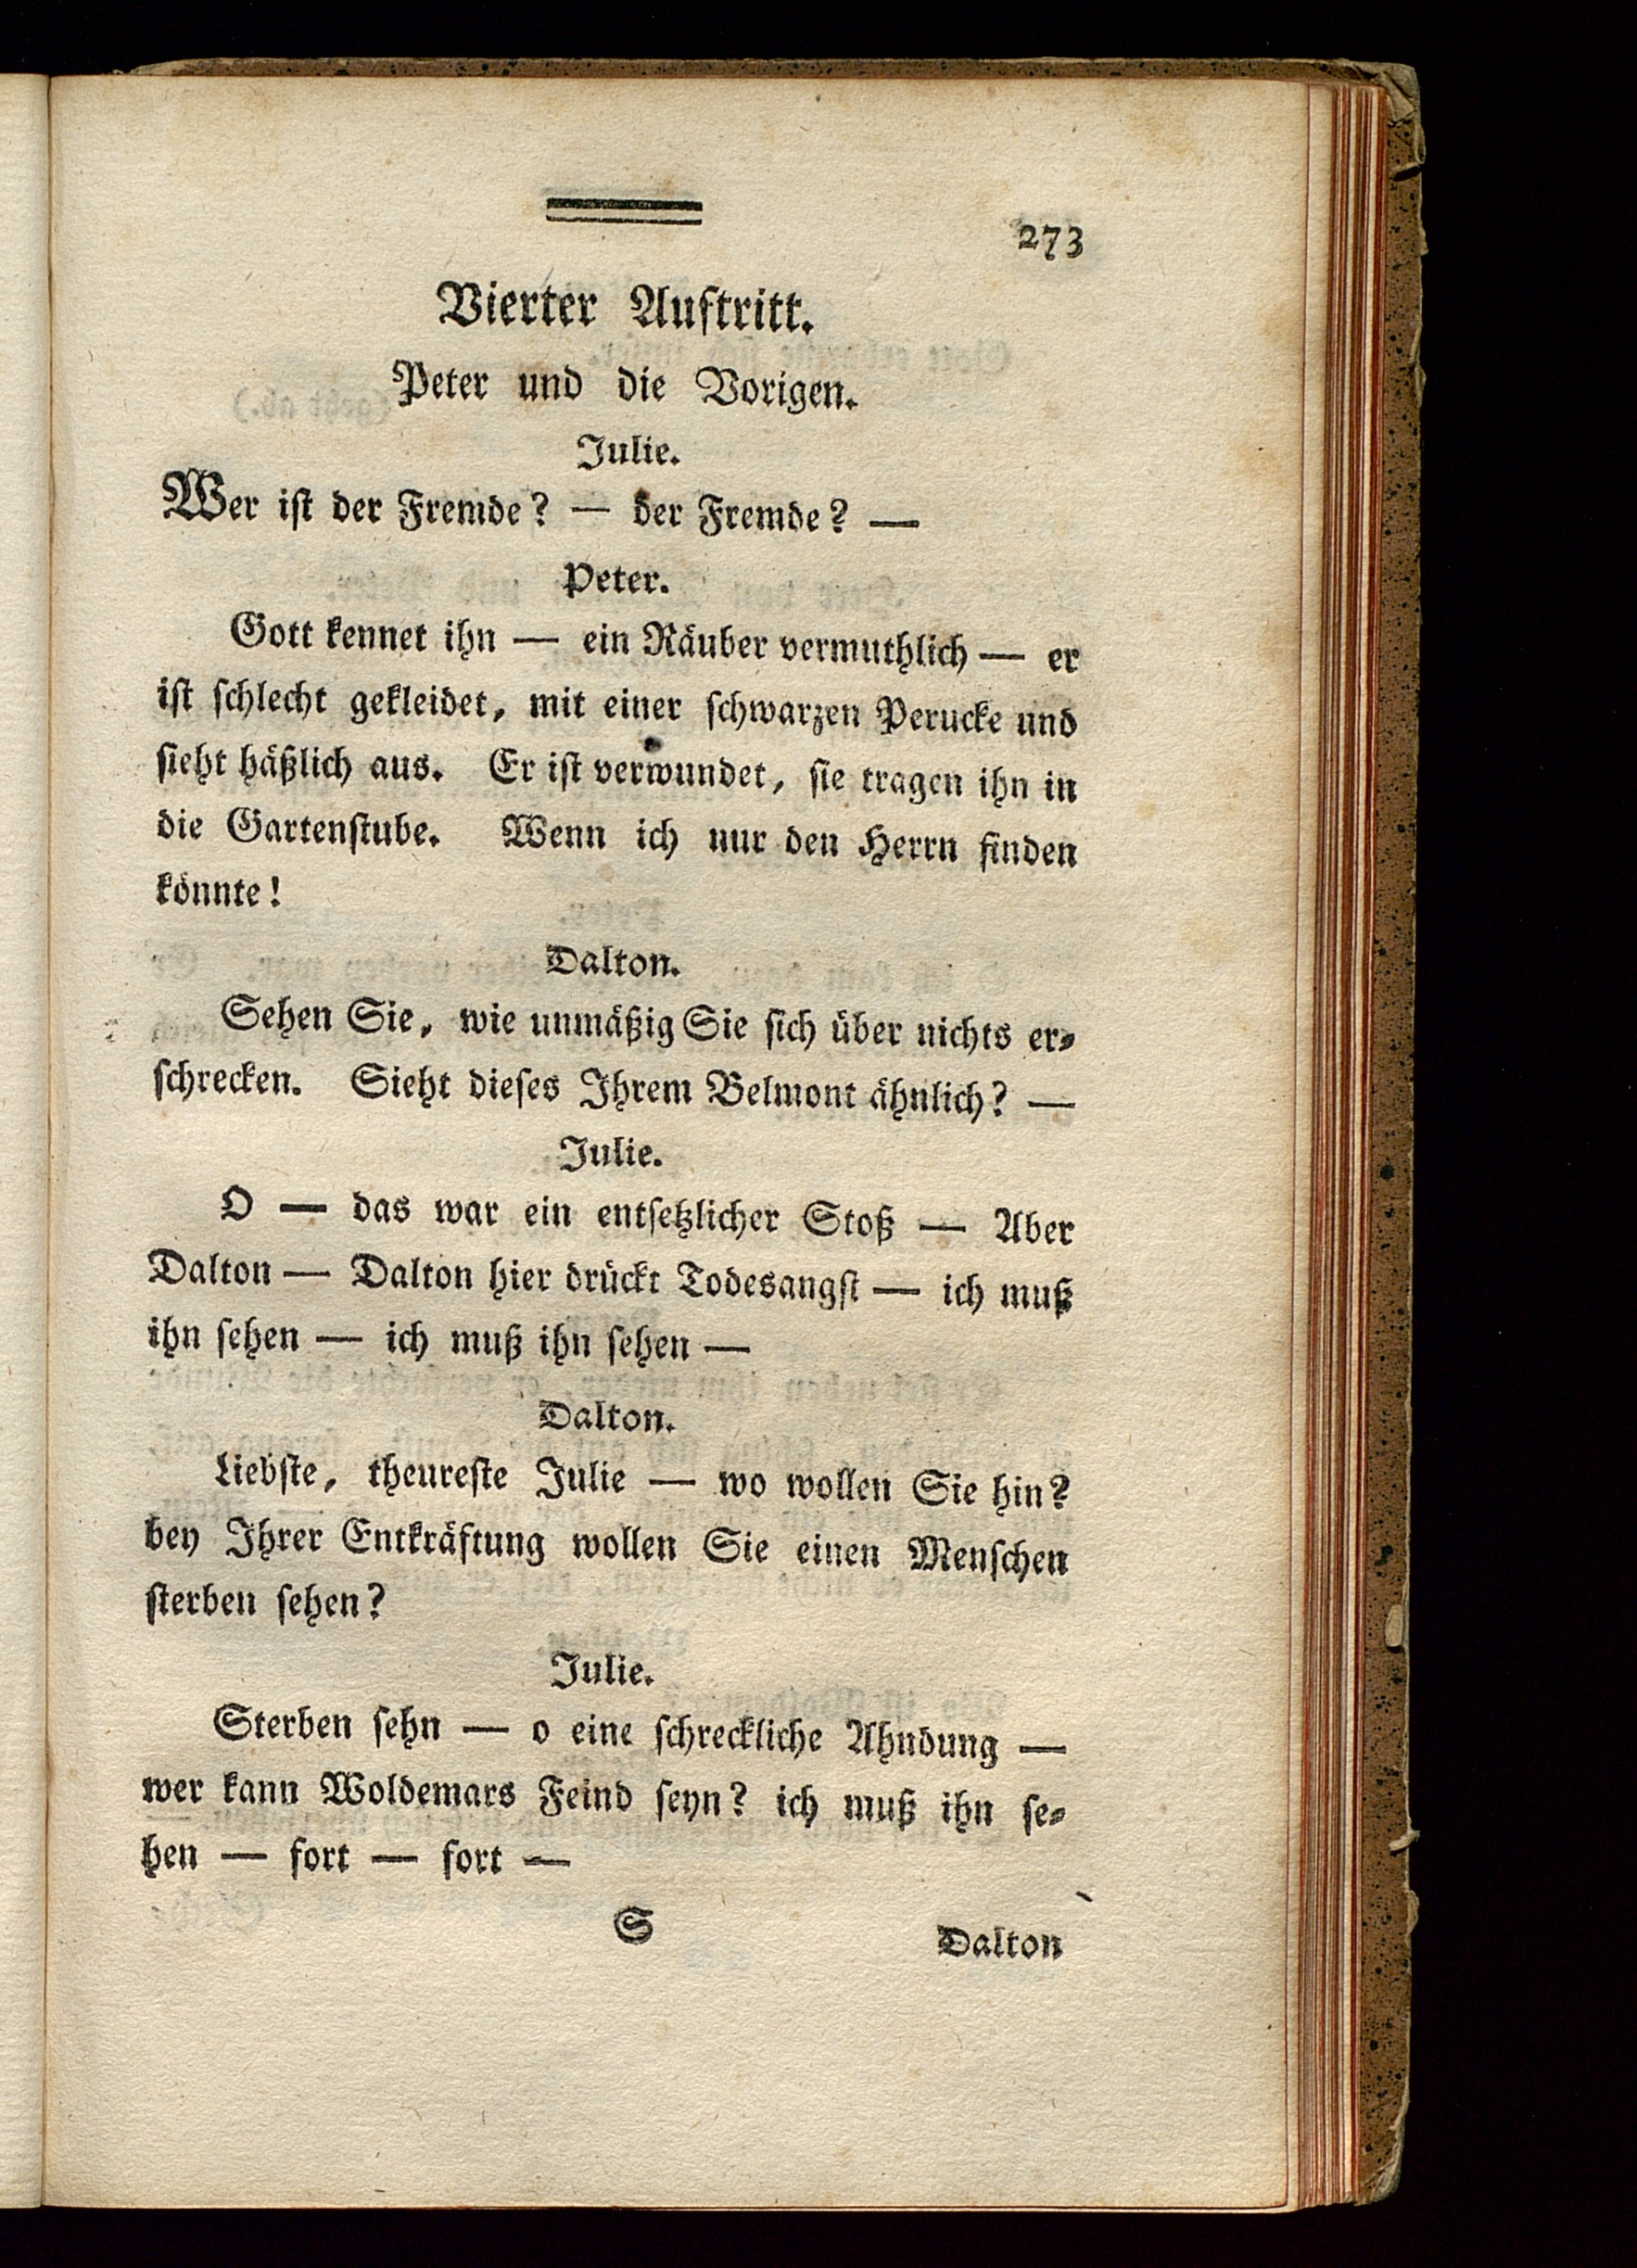 273
Vierter Auftritt.
Peter und die Vorigen.
Julie.
Wer ist der Fremde? — der Fremde? —
Peter.
Gott kennet ihn — ein Räuber vermuthlich — er
ist schlecht gekleidet, mit einer schwarzen Perucke und
sieht häßlich aus. Er ist verwundet, sie tragen ihn in
die Gartenstube. Wenn ich nur den Herrn finden
könnte!
Dalton.
Sehen Sie, wie unmäßig Sie sich über nichts er-
schrecken. Sieht dieses Ihrem Belmont ähnlich? —
Julie.
O — das war ein entsetzlicher Stoß — Aber
Dalton — Dalton hier drückt Todesangst — ich muß
ihn sehen — ich muß ihn sehen —
Dalton.
Liebste, theureste Julie — wo wollen Sie hin?
bey Ihrer Entkräftung wollen Sie einen Menschen
sterben sehen?
Julie.
Sterben sehn — o eine schreckliche Ahndung —
wer kann Woldemars Feind seyn? ich muß ihn se-
hen — fort — fort —
S Dalton